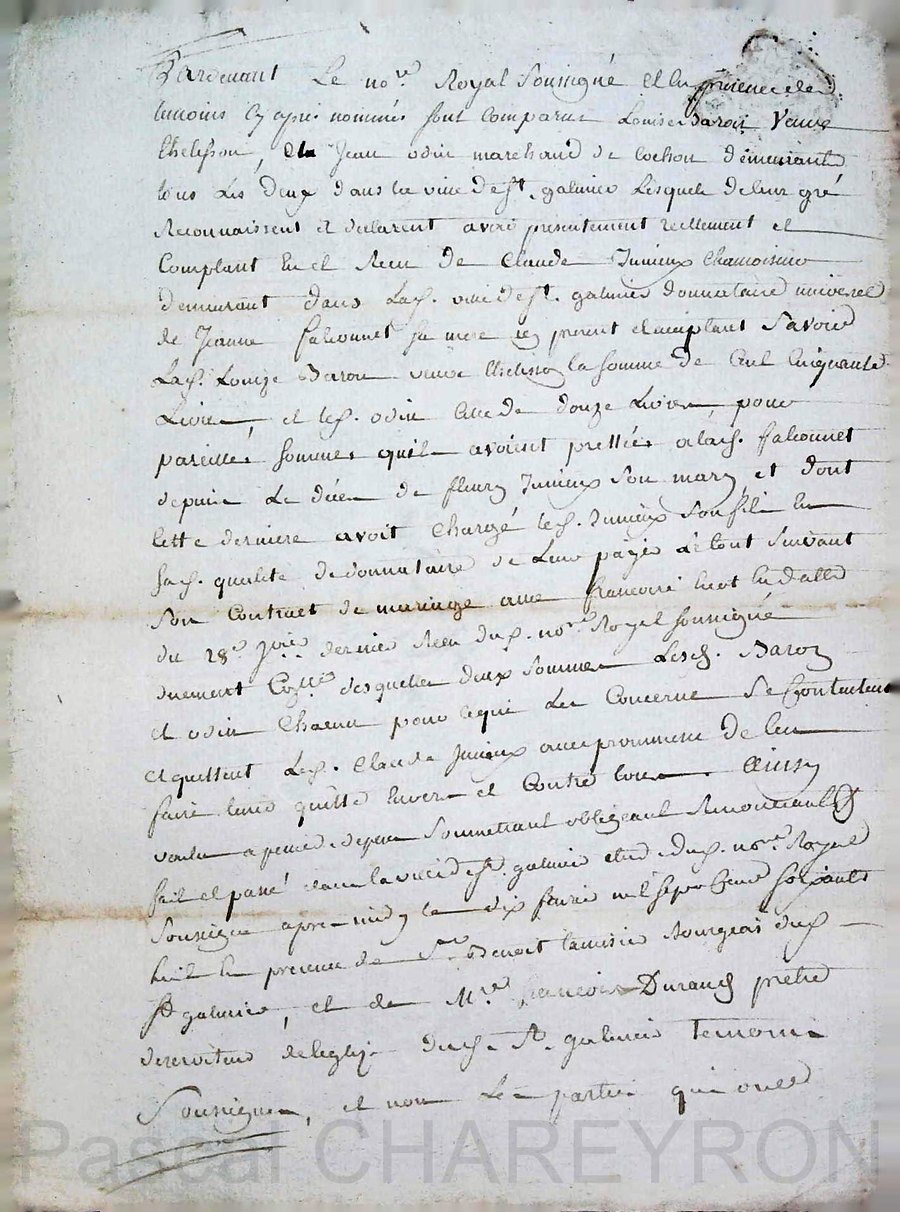 Pardevant Le no.re Royal Soussigné et en presence des
temoins cy apres nommés sont comparus Louise Baron Veuve
Chelisson, et Jean odin marchand de cochon demeurants
tous Les deux dans la ville de st. galmier Lesquels de leur gré
Reconnaissent et declarent avoir presentement reellement et
Comptant Eu et Receu de Claude Junieux Chamoiseur
demeurant dans Lad. ville de st. galmier donnataire universel
de Jeanne falconnet sa mere icy present et acceptant Savoir
Lad. Louize Baron veuve Chelisson la somme de Cent Cinquante
Livres, et led. odin Celle de douze Livres, pour
pareilles sommes quils avoient prettées a lad. falconnet
depuis Le décés de fleury Junieux son mary, et dont
Cette derniere avoit Chargé led. Junieux son fils en
sad. qualité de donnataire de Leur payer Le tout suivant
son Contract de mariage avec francoise huot en datte
du 28e. dernier Receu dud. no.re Royal soussigné
duement desquelles deux sommes Lesd. Baron
et odin Chacun pour ce qui Les Concerne Se Contentent
et quittent Led. Claude Junieux avec promesse de L'en
faire tenir quitte Envers et Contre tous. Ainsy
voulu a peine depens Soumettant obligeant Renonceant &
fait et passé dans la ville de st. galmier etude dud. no.re Royal
Soussigné apres midy le dix fevrier mil sept Cent Soixante
huit En presence de Sr. Benoit bourgeois dud.
st galmier, et de Mre. francois Durand prêtre
deserviteur de leglize dud. st. galmier temoins
Soussignes, et non Les parties qui ont
Pascal CHAREYRON